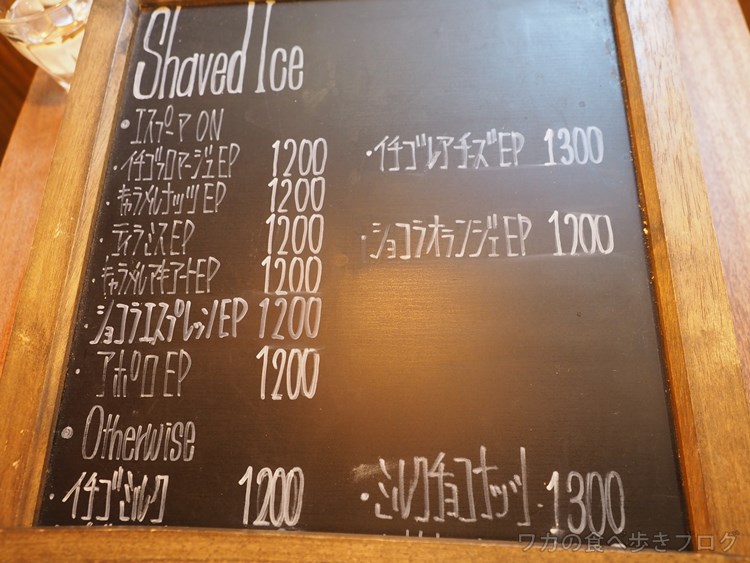 Shaved Ice
・エスプーマ ON
・イチゴフロマージュEP 1200
・キャラメルナッツEP 1200
・ティラミスEP 1200
・キャラメルマキアートEP 1200
・ショコラエスプレッソEP 1200
・アポロEP 1200
・イチゴレアチーズEP 1300
・ショコラオランジェEP 1200
・Otherwise
・イチゴミルク 1200
・ミルクチョコナッツ 1300
ワカの食べ歩きブログ